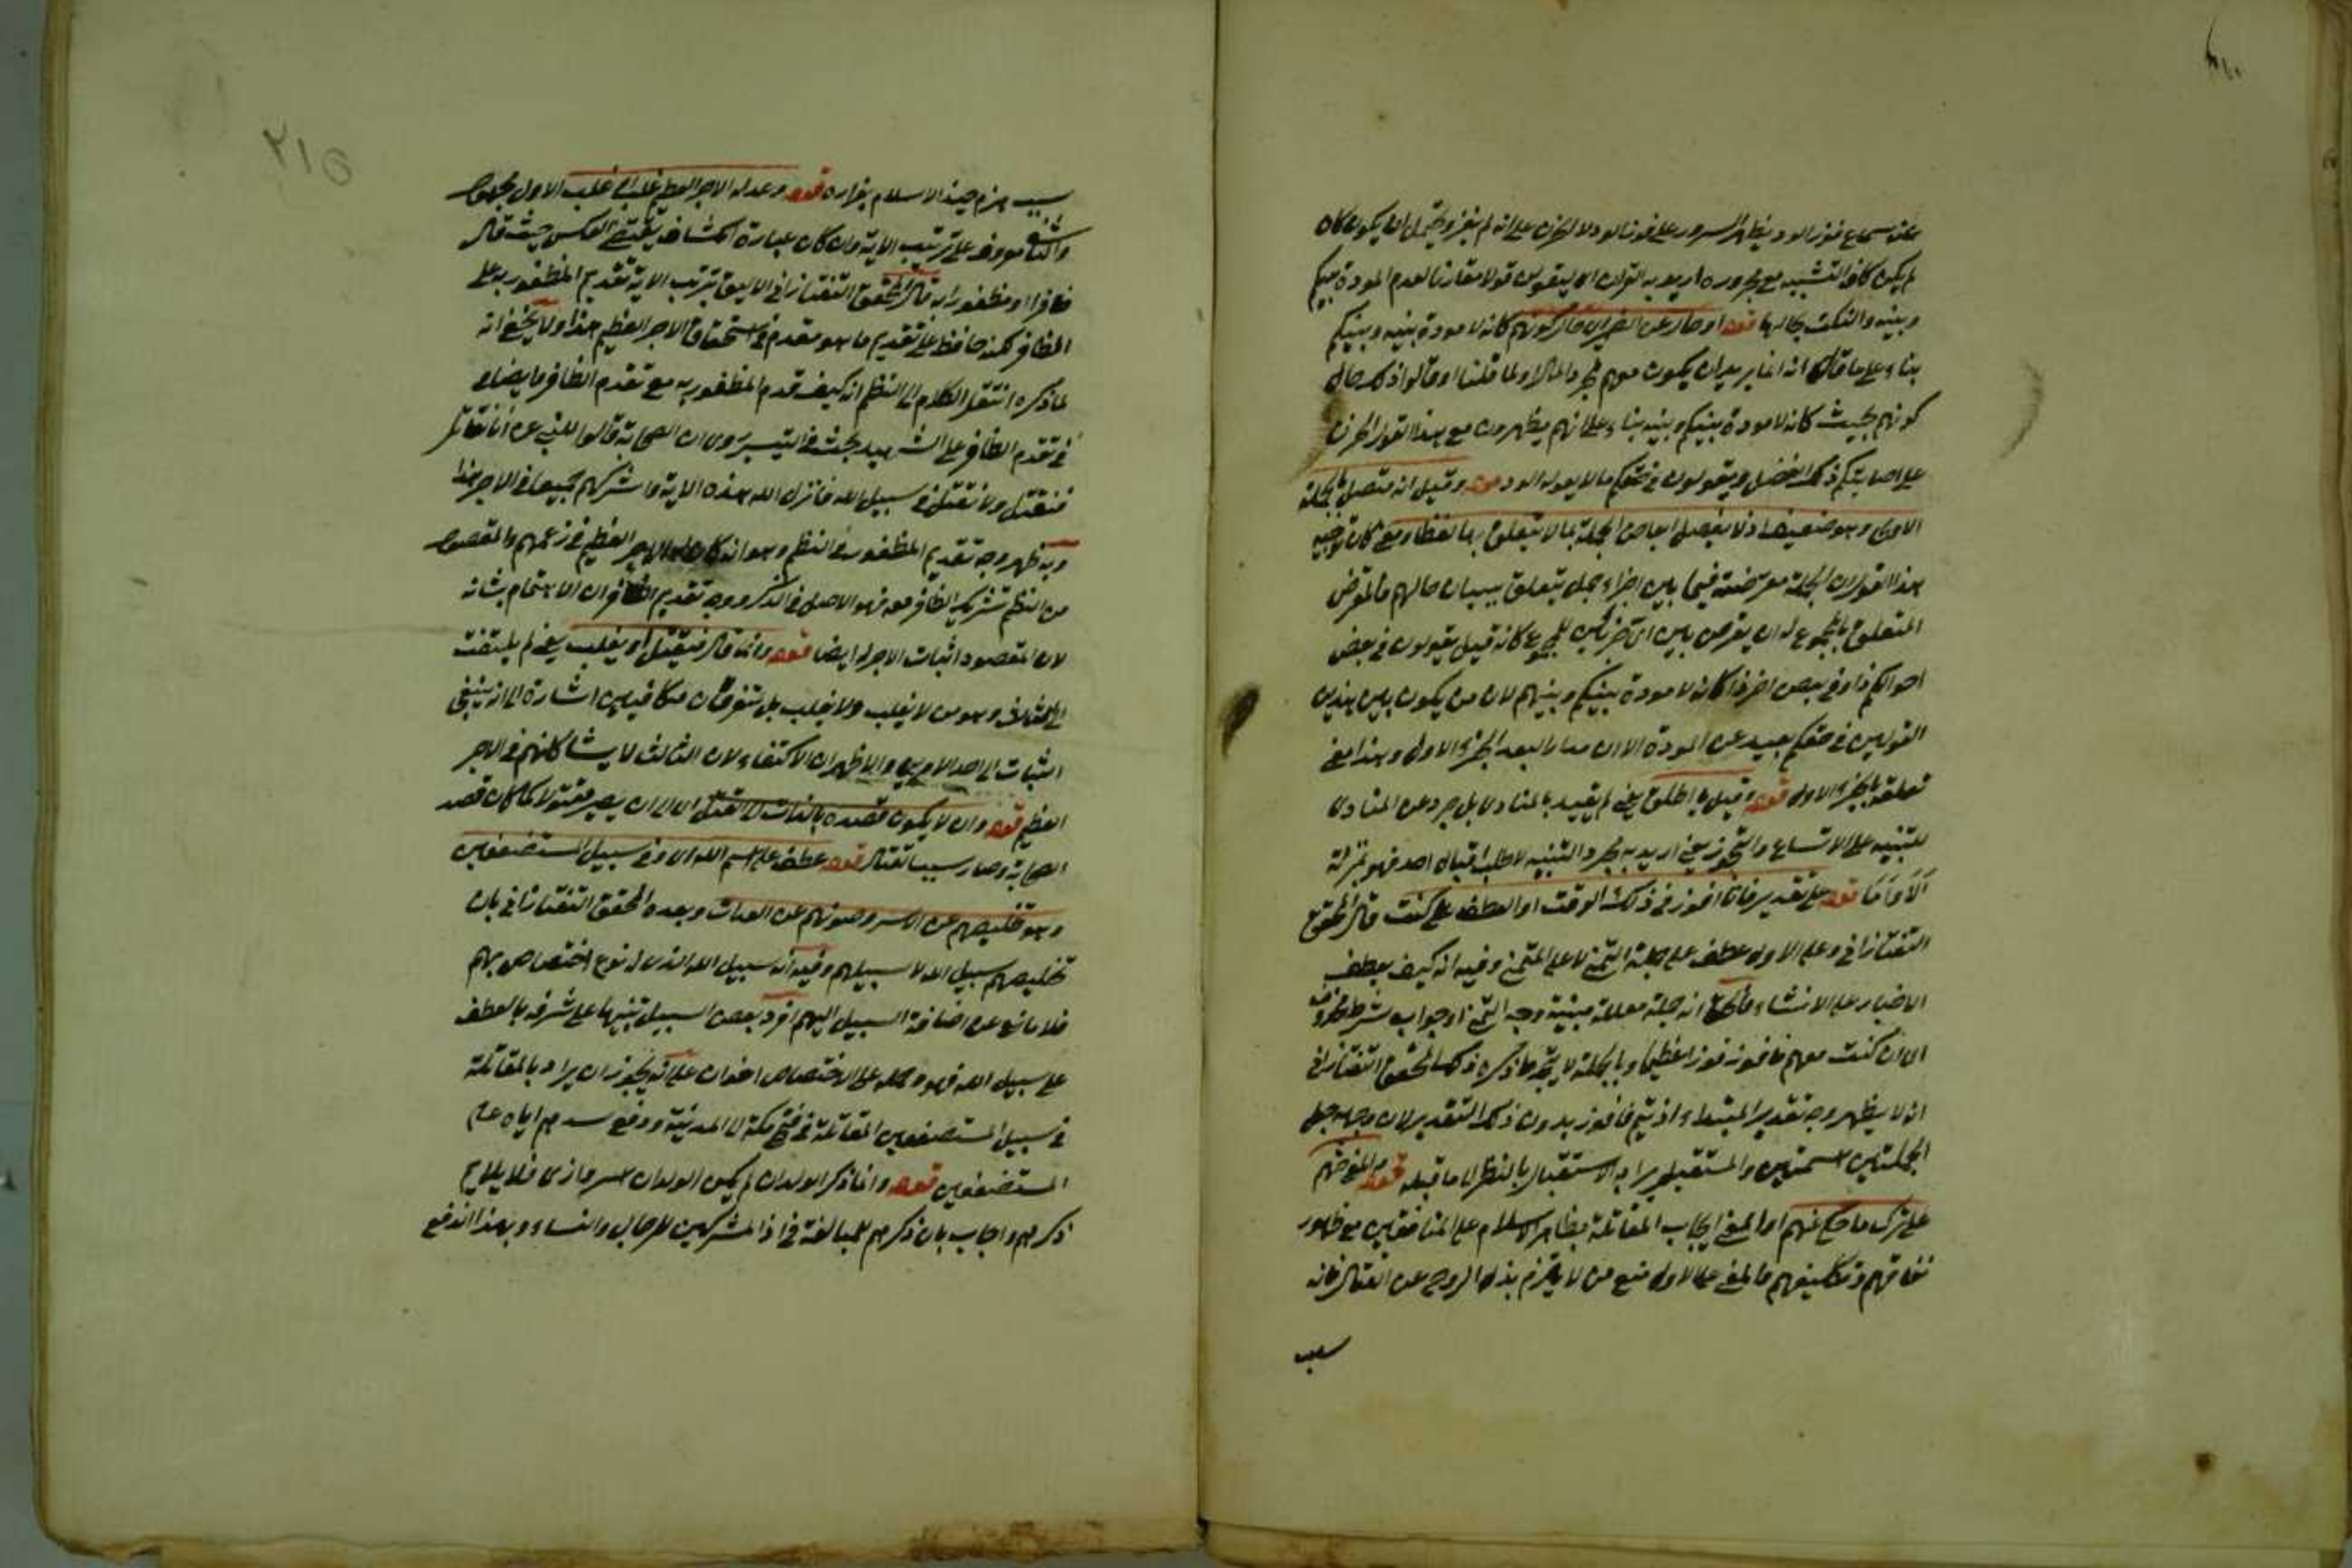 عند سماع فوز الود يظهر السرور على فوز الود لا الحزن على انه لم يفز ويحتمل ان يكون كان
لم يكن كاف التشبيه مع مجروره اريد به القران اى ليقولن قولا مقارنا لعدم المودة بينكم
وبينه والنكت بحالها قوله او حال عن الضمير اى حال كونهم كانه لا مودة بينه وبينكم
بناء على ما قال انه انما يريد ان يكون معهم لمجرد المال او لما قلنا او قالوا ذلك حال
كونهم بحيث كانه لا مودة بينكم وبينه بناء على انهم يظهرون مع هذا القول الحزن
على اصابتكم ذلك الفضل ويقولون فى حقكم ما لا يقوله الود قوله وقيل انه متصل بالجملة
الاولى وهو ضعيف اذ لا يفصل ابعاض الجملة بما لا يتعلق بها لفظا ومعنى كان توجيه
هذا القول ان الجملة معترضة فيما بين اجزاء جمل يتعلق ببيان حالهم فالمعترض
المتعلق بالمجموع له ان يعرض بين اى جزئين للمجموع كانه قيل يقولون فى بعض
احوالكم ذا وفى بعض اخر ذا كانه لا مودة بينكم وبينهم لان من يكون بين هذين
القولين فى حقكم بعيد عن المودة الا ان مدار البعد الجزء الاول وهذا معنى
تعلقه بالجزء الاول قوله وقيل يا اطلق يعنى لم يقيد بالمنادى بل جرد عن المنادى
للتنبيه على الاتساع والتجوز يعنى اريد به مجرد التنبيه لا طلب اقبال احد فهو بمنزلة
الا واما قوله على تقدير فانا افوز فى ذلك الوقت او العطف على كنت قال المحقق
التفتازانى وعلى الاول عطف على جملة التمنى لا على المتمنى وفيه انه كيف يعطف
الاخبار على الانشاء فالحق انه جملة معللة مبنية وجه التمنى او جواب شرط محذوف
اى ان كنت معهم فافوز فوزا عظيما وبالجملة لا يتجه ما ذكره ذلك المحقق التفتازانى
انه لا يظهر وجه تقدير المبتداء اذ يتم فافوز بدون ذلك التقدير لان وجهه جعل
الجملتين اسميتين والمستقبل يراد به الاستقبال بالنظر الى ما قبله قوله والمعنى حثهم
على ترك ما حكى عنهم او المعنى ايجاب المقاتلة بظاهر الاسلام على المنافقين مع ظهور
نفاقهم وتكليفهم فالمعنى على الاول منع من لا يلتزم بذل الروح عن القتال فانه
سبب
٢١٥
سبب هزم جند الاسلام بفراره قوله وعد له الاجر العظيم غلب او غلب الاول مجهول
والثانى معروف على ترتيب الاية وان كان عبارة الكشاف يقتضى العكس حيث قال
ظافرا او مظفورا به قال المحقق التفتازانى الاليق بترتيب الاية تقديم المظفور به على
الظافر لكنه حافظ على تقديم ما هو مقدم فى استحقاق الاجر العظيم هذا ولا يخفى انه
لما ذكره انتقل الكلام الى النظم انه كيف قدم المظفور به مع تقدم الظافر فيما يضاف
فى تقدم الظافر على الشهيد بحث فى التيسير روى ان الصحابة قالوا للنبى عم انا نقاتل
فنقتل ولا نقتل فى سبيل الله فانزل الله هذه الاية واشركهم جميعا فى الاجر هذا
وبه ظهر وجه تقديم المظفور فى النظم وهو انه كان له الاجر العظيم فى زعمهم والمقصود
من النظم تشريك الظافر معه فهو الاصل فى الذكر ووجه تقديم الظافر ان الاهتمام بشانه
لان المقصود اثبات الاجر له ايضا قوله وانما قال فيقتل او يغلب يعنى لم يلتفت
الى الثالث وهو من لا يغلب ولا يغلب بل يتفرقان متكافيين اشارة الى انه ينبغى
الثبات الى احد الامرين والاظهر ان الاكتفاء لان الثالث لا يشاركهم فى الاجر
العظيم قوله وان لا يكون قصده بالذات الى القتل اى الى ان يصير مقتولا كما كان قصد
الصحابة وصار سببا لقتال قوله عطف على اسم الله اى وفى سبيل المستضعفين
وهو تخليصهم عن الاسر وصونهم عن العدات وبعده المحقق التفتازانى بان
تخليصهم سبيل الله لا سبيلهم وفيه انه سبيل الله الذى له نوع اختصاص بهم
فلا مانع عن اضافة السبيل اليهم افرد بعض السبيل تنبيها على شرفه بالعطف
على سبيل الله فهو وحمله على الاختصاص اخوان على انه يجوز ان يراد بالمقاتلة
فى سبيل المستضعفين المقاتلة فى فتح مكة الى المدينة ودفع سدهم اياه على
المستضعفين قوله وانما ذكر الولدان لم يكن الولدان اسر واذى فلا يلايم
ذكرهم واجاب بان ذكرهم للمبالغة فى اذا المشركين للرجال والنساء وبهذا اندفع